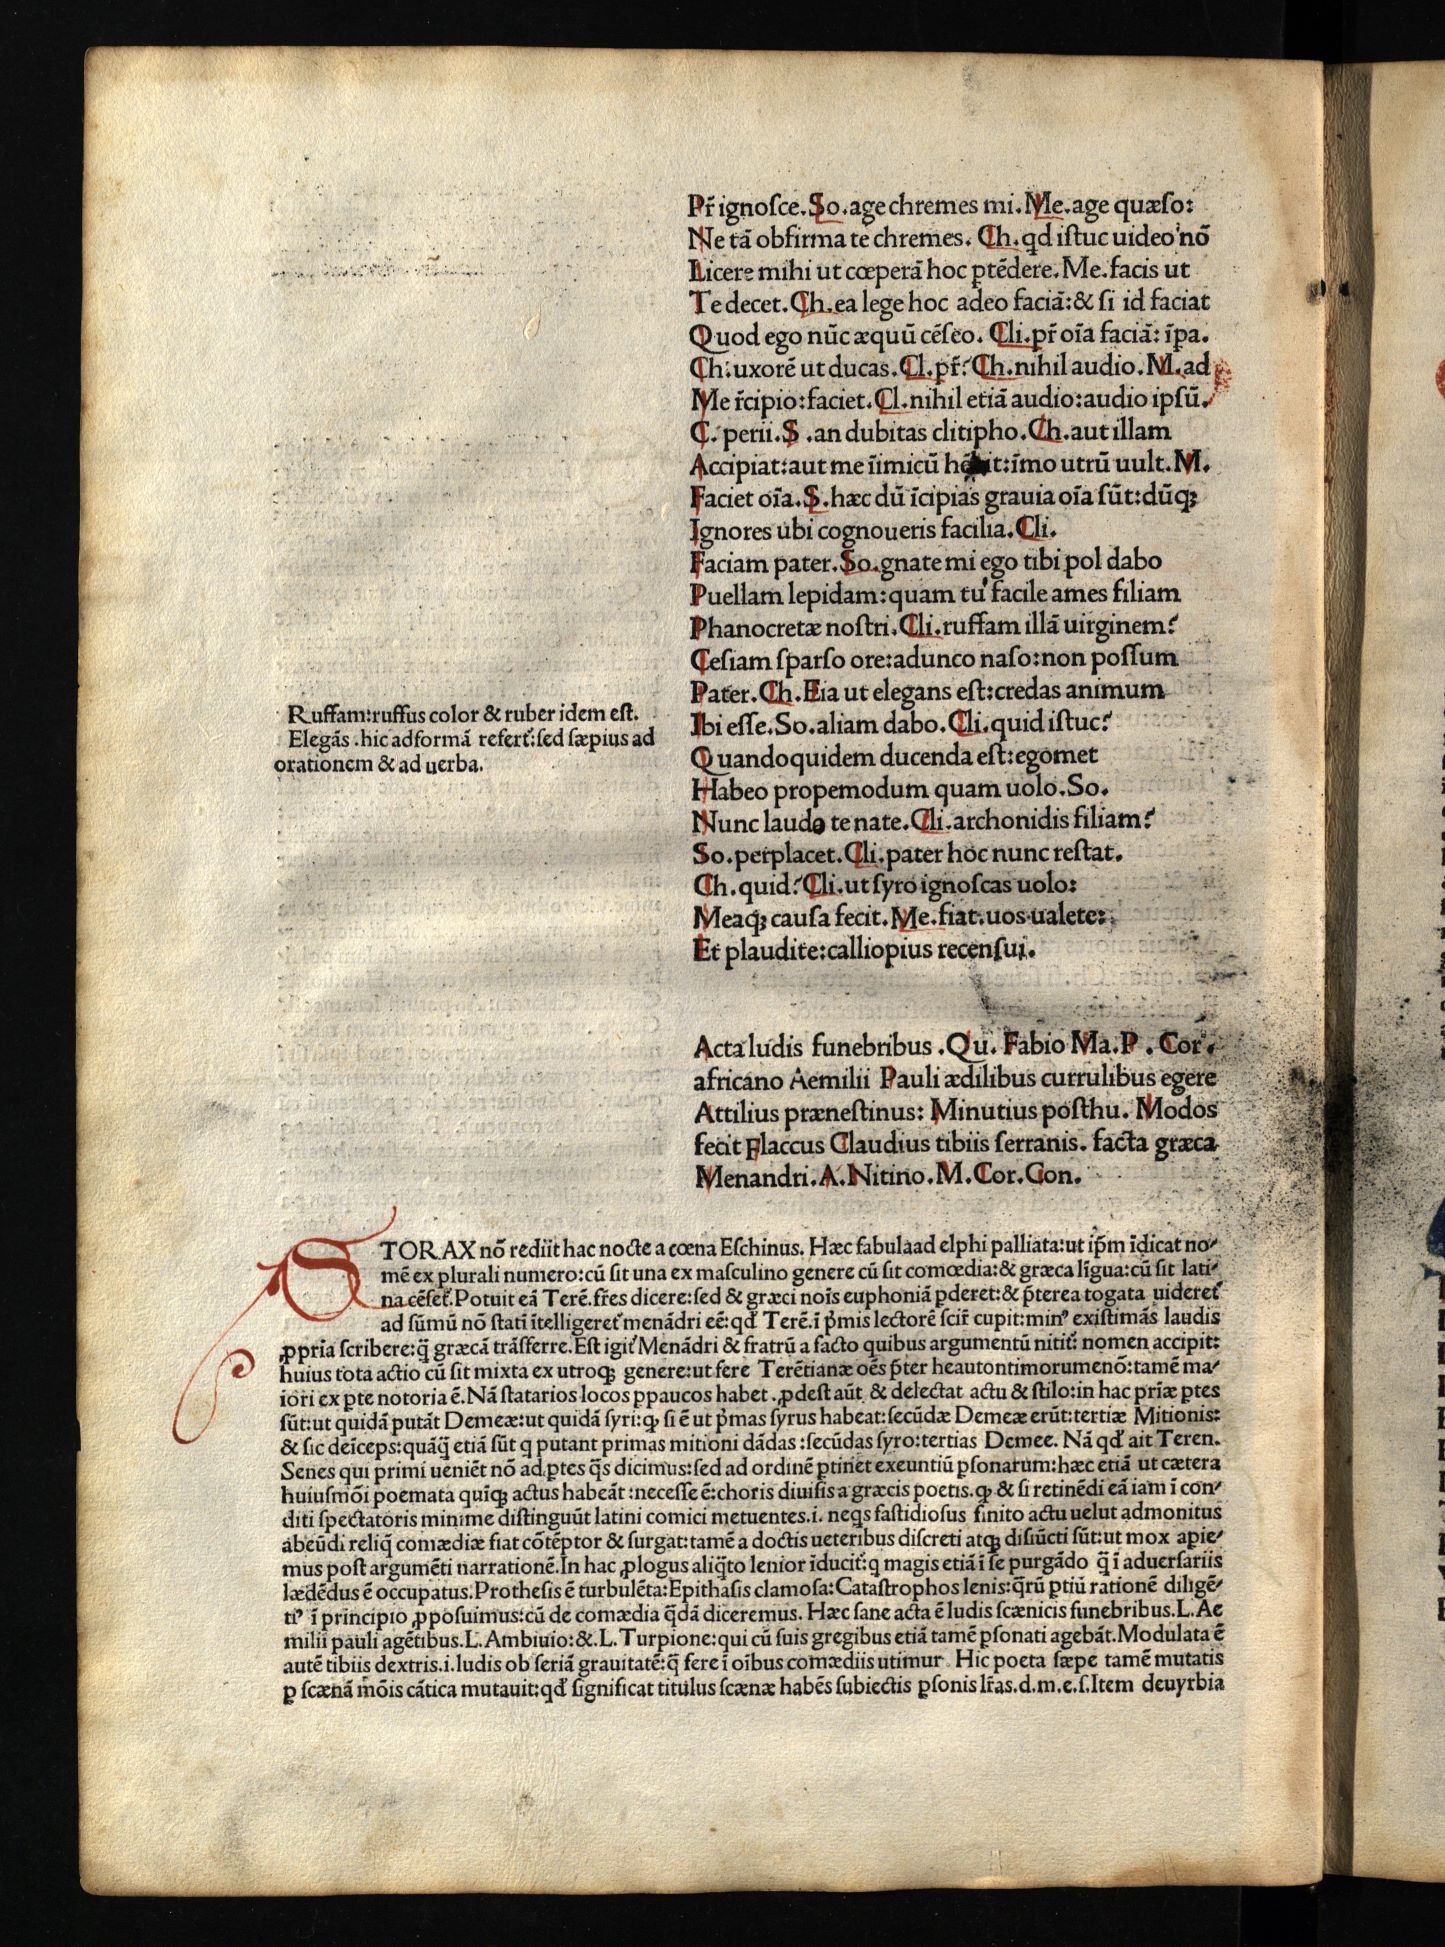 Pr̃ ignoſce.So.age chremes mi.Me.age quæſo:
Ne tã obfirma te chremes. Ch.qd iſtuc uideo nõ
Licere mihi ut cœperã hoc ꝑtẽdere.Me.facis ut
Te decet.Ch.ea lege hoc adeo faciã:& ſi id faciat
Quod ego nũc æquũ cẽſeo. Cli.pr̃ oĩa faciã: ĩpa.
Ch.uxorẽ ut ducas.Cl.pr̃? Ch.nihil audio.M.ad
Me r̃cipio:faciet.Cl.nihil etiã audio:audio ipſũ.
C. perii.S .an dubitas clitipho.Ch.aut illam
Accipiat:aut me iĩmicũ :ĩmo utrũ uult.M.
Faciet oĩa.S.hæc dũ ĩcipias grauia oĩa ſũt:dũqꝫ
Ignores ubi cognoueris facilia.Cli.
Faciam pater.So.gnate mi ego tibi pol dabo
Puellam lepidam:quam tu facile ames filiam
Phanocretæ noſtri.Cli.ruffam illã uirginem?
Ceſiam ſparſo ore:adunco naſo:non poſſum
Pater.Ch.Eia ut elegans eſt:credas animum
Ibi eſſe.So.aliam dabo.Cli.quid iſtuc?
Quandoquidem ducenda eſt:egomet
Habeo propemodum quam uolo.So.
Nunc laudo te nate.Cli.archonidis filiam?
So.perplacet.Cli.pater hoc nunc reſtat.
Ch.quid? Cli.ut ſyro ignoſcas uolo:
Meaqꝫ cauſa fecit.Me.fiat.uos ualete:
Et plaudite:calliopius recenſui.
Ruffam:ruffus color & ruber idem eſt.
Elegãs .hic ad formã refert̃:ſed ſæpius ad
orationem & ad uerba.
Acta ludis funebribus .Qu. Fabio Ma.P . Cor.
africano Aemilii Pauli ædilibus currulibus egere
Attilius præneſtinus: Minutius poſthu. Modos
fecit Flaccus Claudius tibiis ſerranis. facta græca
Menandri.A.Nitino.M.Cor.Con.
STORAX nõ rediit hac nocte a cœna Eſchinus. Hæc fabula ad elphi palliata:ut ip̃m ĩdicat no⸗
mẽ ex plurali numero:cũ ſit una ex maſculino genere cũ ſit comœdia:& græca lĩgua:cũ ſit lati⸗
na cẽſet̃.Potuit eã Terẽ.fr̃es dicere:ſed & græci noĩs euphoniã ꝑderet:& p̃terea togata uideret̃
ad ſũmũ nõ ſtatĩ ĩtelligeret̃ menãdri eẽ:qđ Terẽ.ĩ p̃mis lectorẽ ſcir̃ cupit:minꝰ exiſtimãs laudis
ꝓpria ſcribere:q̃ græcã trãſferre.Eſt igit̃ Menãdri & fratrũ a facto quibus argumentũ nitit̃: nomen accipit:
huius tota actio cũ ſit mixta ex utroqꝫ genere:ut fere Terẽtianæ oẽs p̃ter heautontimorumenõ:tamẽ ma⸗
iori ex ꝑte motoria ẽ. Nã ſtatarios locos ꝑpaucos habet .ꝓdeſt aũt & delectat actu & ſtilo:in hac prĩæ ꝑtes
ſũt:ut quidã putãt Demeæ:ut quidã ſyri:qꝫ ſi ẽ ut p̃mas ſyrus habeat:ſecũdæ Demeæ erũt:tertiæ Mitionis:
& ſic deĩceps:quãq̃ etiã ſũt q putant primas mitioni dãdas :ſecũdas ſyro:tertias Demee. Nã qđ ait Teren.
Senes qui primi ueniẽt nõ ad ꝑtes q̃s dicimus:ſed ad ordinẽ ꝑtinet exeuntiũ ꝑſonarum:hæc etiã ut cætera
huiuſmõi poemata quĩqꝫ actus habeãt :neceſſe ẽ:choris diuiſis a græcis poetis.qꝫ & ſi retinẽdi eã iam ĩ con⸗
diti ſpectatoris minime diſtinguũt latini comici metuentes.i. neq̃s faſtidioſus finito actu uelut admonitus
abeũdi reliq̃ comædiæ fiat cõtẽptor & ſurgat:tamẽ a doctis ueteribus diſcreti atqꝫ diſiũcti ſũt:ut mox apie⸗
mus poſt argumẽti narrationẽ.In hac ꝓlogus aliq̃to lenior ĩducit̃:q magis etiã ĩ ſe purgãdo q̃ ĩ aduerſariis
lædẽdus ẽ occupatus.Protheſis ẽ turbulẽta:Epithaſis clamoſa:Cataſtrophos lenis:q̃rũ ꝑtiũ rationẽ diligẽ⸗
tiꝰ ĩ principio ꝓpoſuimus:cũ de comædia q̃dã diceremus. Hæc ſane acta ẽ ludis ſcænicis funebribus.L.Ae
milii pauli agẽtibus.L.Ambiuio:&.L.Turpione:qui cũ ſuis gregibus etiã tamẽ ꝑſonati agebãt.Modulata ẽ
autẽ tibiis dextris.i.ludis ob ſeriã grauitatẽ:q̃ fere ĩ oĩbus comædiis utimur Hic poeta ſæpe tamẽ mutatis
ꝑ ſcænã mõis cãtica mutauit:qđ ſignificat titulus ſcænæ habẽs ſubiectis ꝑſonis lr̃as.d.m.e.ſ.Item deuyrbia